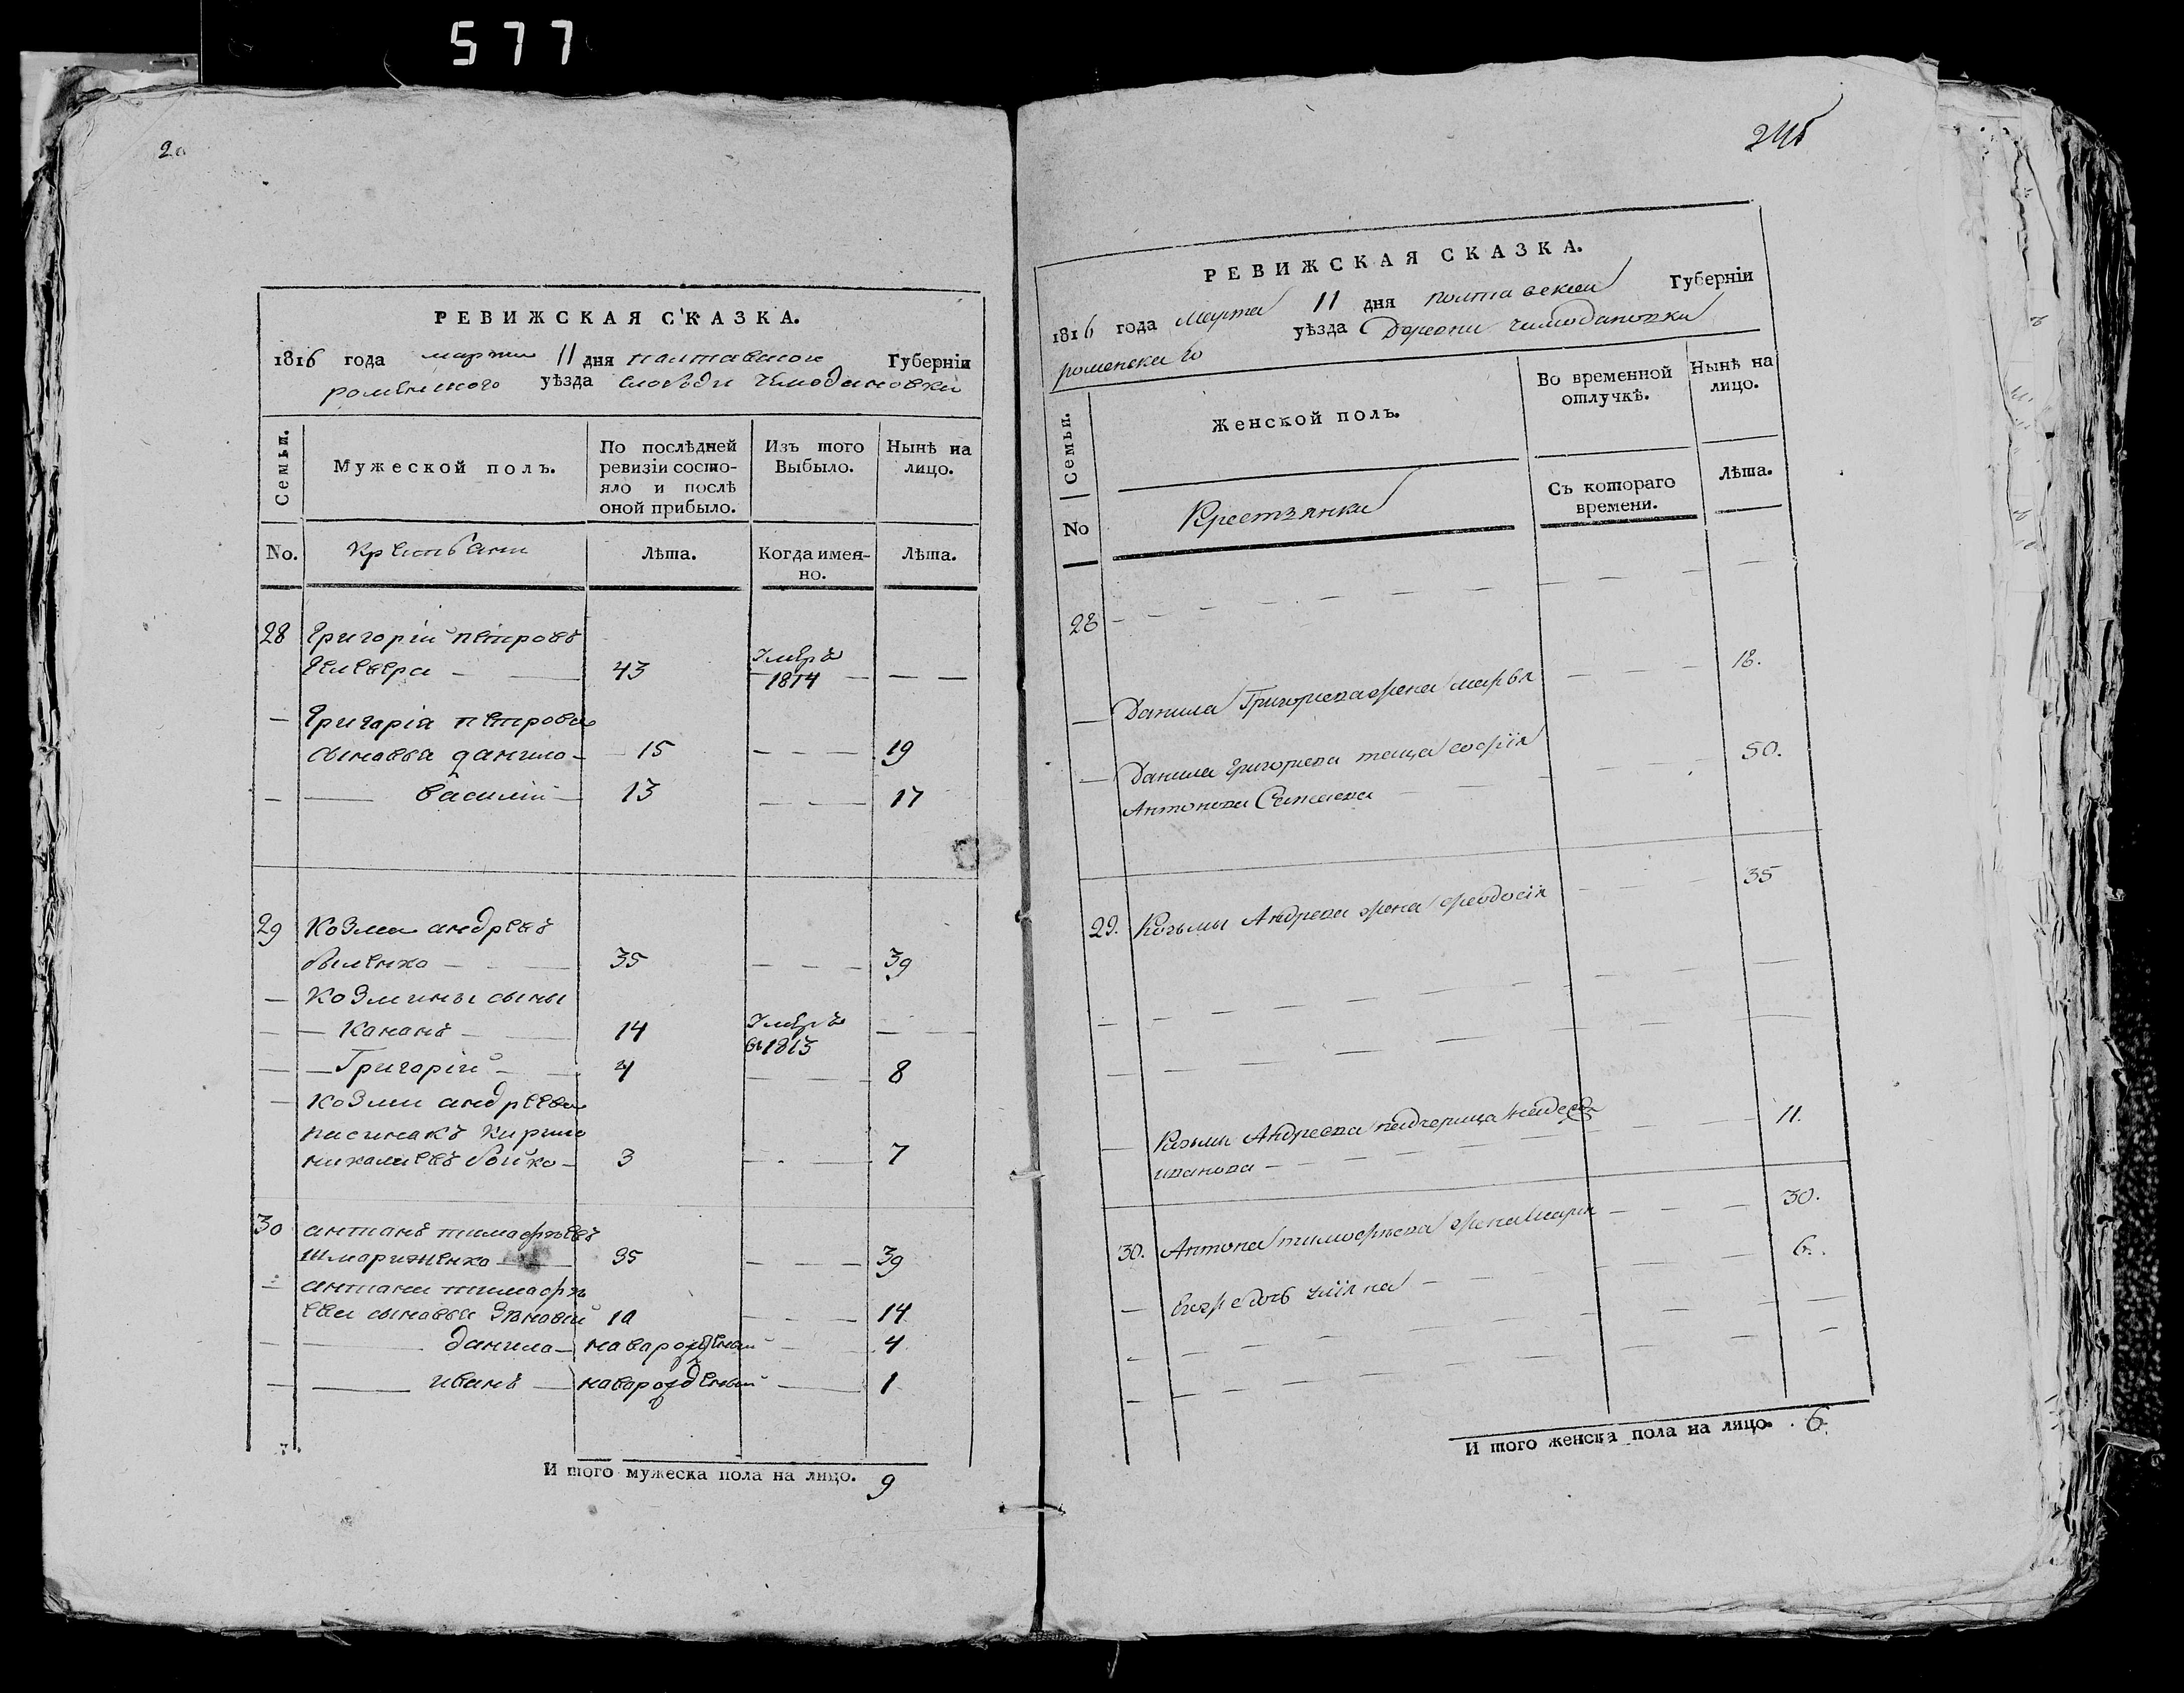 577
20
РЕВИЖСКАЯ СКАЗКА.
1816 года марта 11 дня полтавской Губерніи
роменского уѣзда слободи чемодановки
Семьи.
Мужеской полъ.
По послѣдней ревизіи состояло и послѣ оной прибыло.
Изъ того Выбыло.
Нынѣ на лицо.
No.
Крестьяни
Лѣта.
Когда именно.
Лѣта.
28 Григорій петровъ
43 Умеръ 1814 — —
— Григорія петрова
сыновья данило — 15 — — — 19
— — василій — 13 — — — 17
29 Козма андреевъ
35 — — — 39
— Козмины сыны
— — Кананъ — 14 Умеръ въ 1813 — —
— — Григорій — 4 — — — 8
— Козми андреева
пасинокъ кирило
бойко — 3 — — — 7
30 антанъ тимофѣевъ
35 — — — 39
— антана тимофѣ
ева сыновья Зѣновій 10 — — — 14
— — данила — наварожденый — 4
— — иванъ — наварожденый — 1
И того мужеска пола на лицо. 9
245
РЕВИЖСКАЯ СКАЗКА.
1816 года марта 11 дня полтавской Губерніи
роменскаго уѣзда Деревни чимодановки
Семьи.
Женской полъ.
Во временной отлучкѣ.
Нынѣ на лицо.
No
Крестьянки
Съ котораго времени.
Лѣта.
28 — — — — — —
— Данила Григорева жена марья — — — 18.
— Данила Григорева теща софія — — — 50.
Антонова
29. Козьмы Андреева жена феодосія — — — 35
— — — — —
— — — — —
— Козьмы Андреева падчерица
иванова — — — 11.
30. Антона тимофѣева жена марія — — — 30.
— Ихъ дочь уліяна — — — 6.
— — — — —
— — — — —
И того женска пола на лицо. 6.